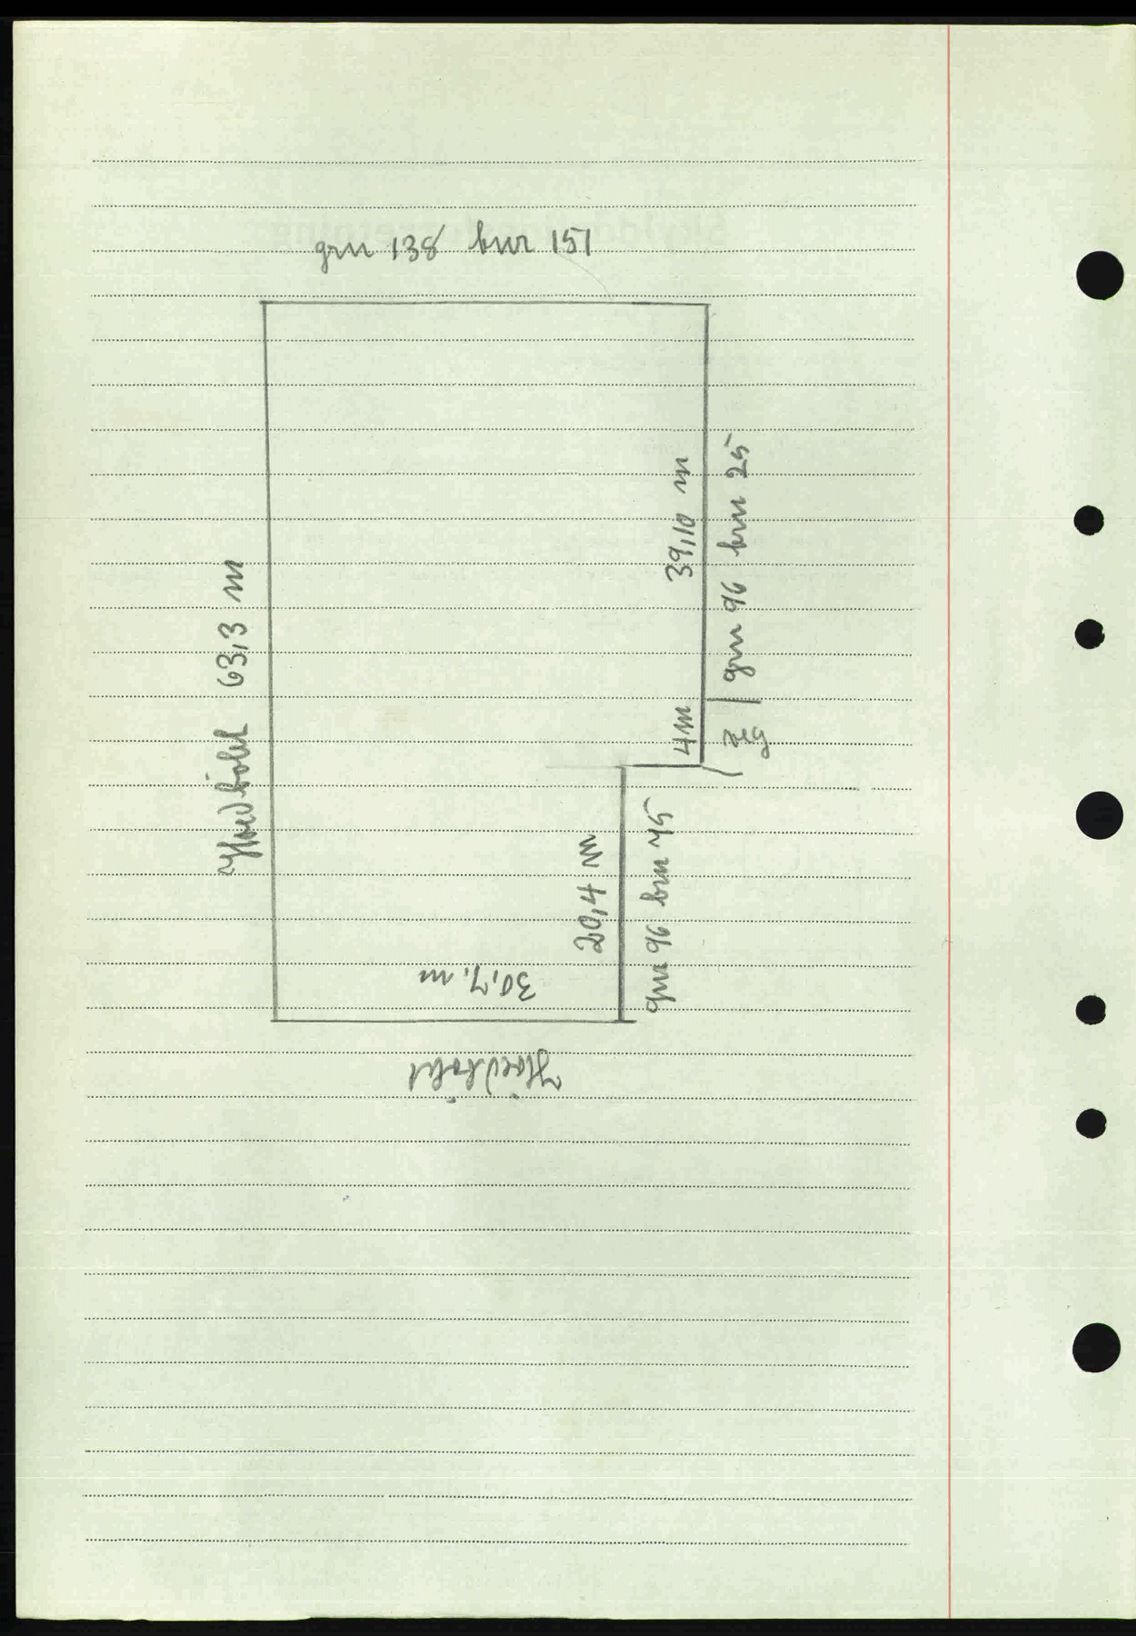 gnr 138 bnr 151
39,10 m
gnr 96 bnr 25
Hovedbölet 63,3 m
4m
veg
20,4 m
gnr 96 bnr 45
30,7 m
Hovedbölet